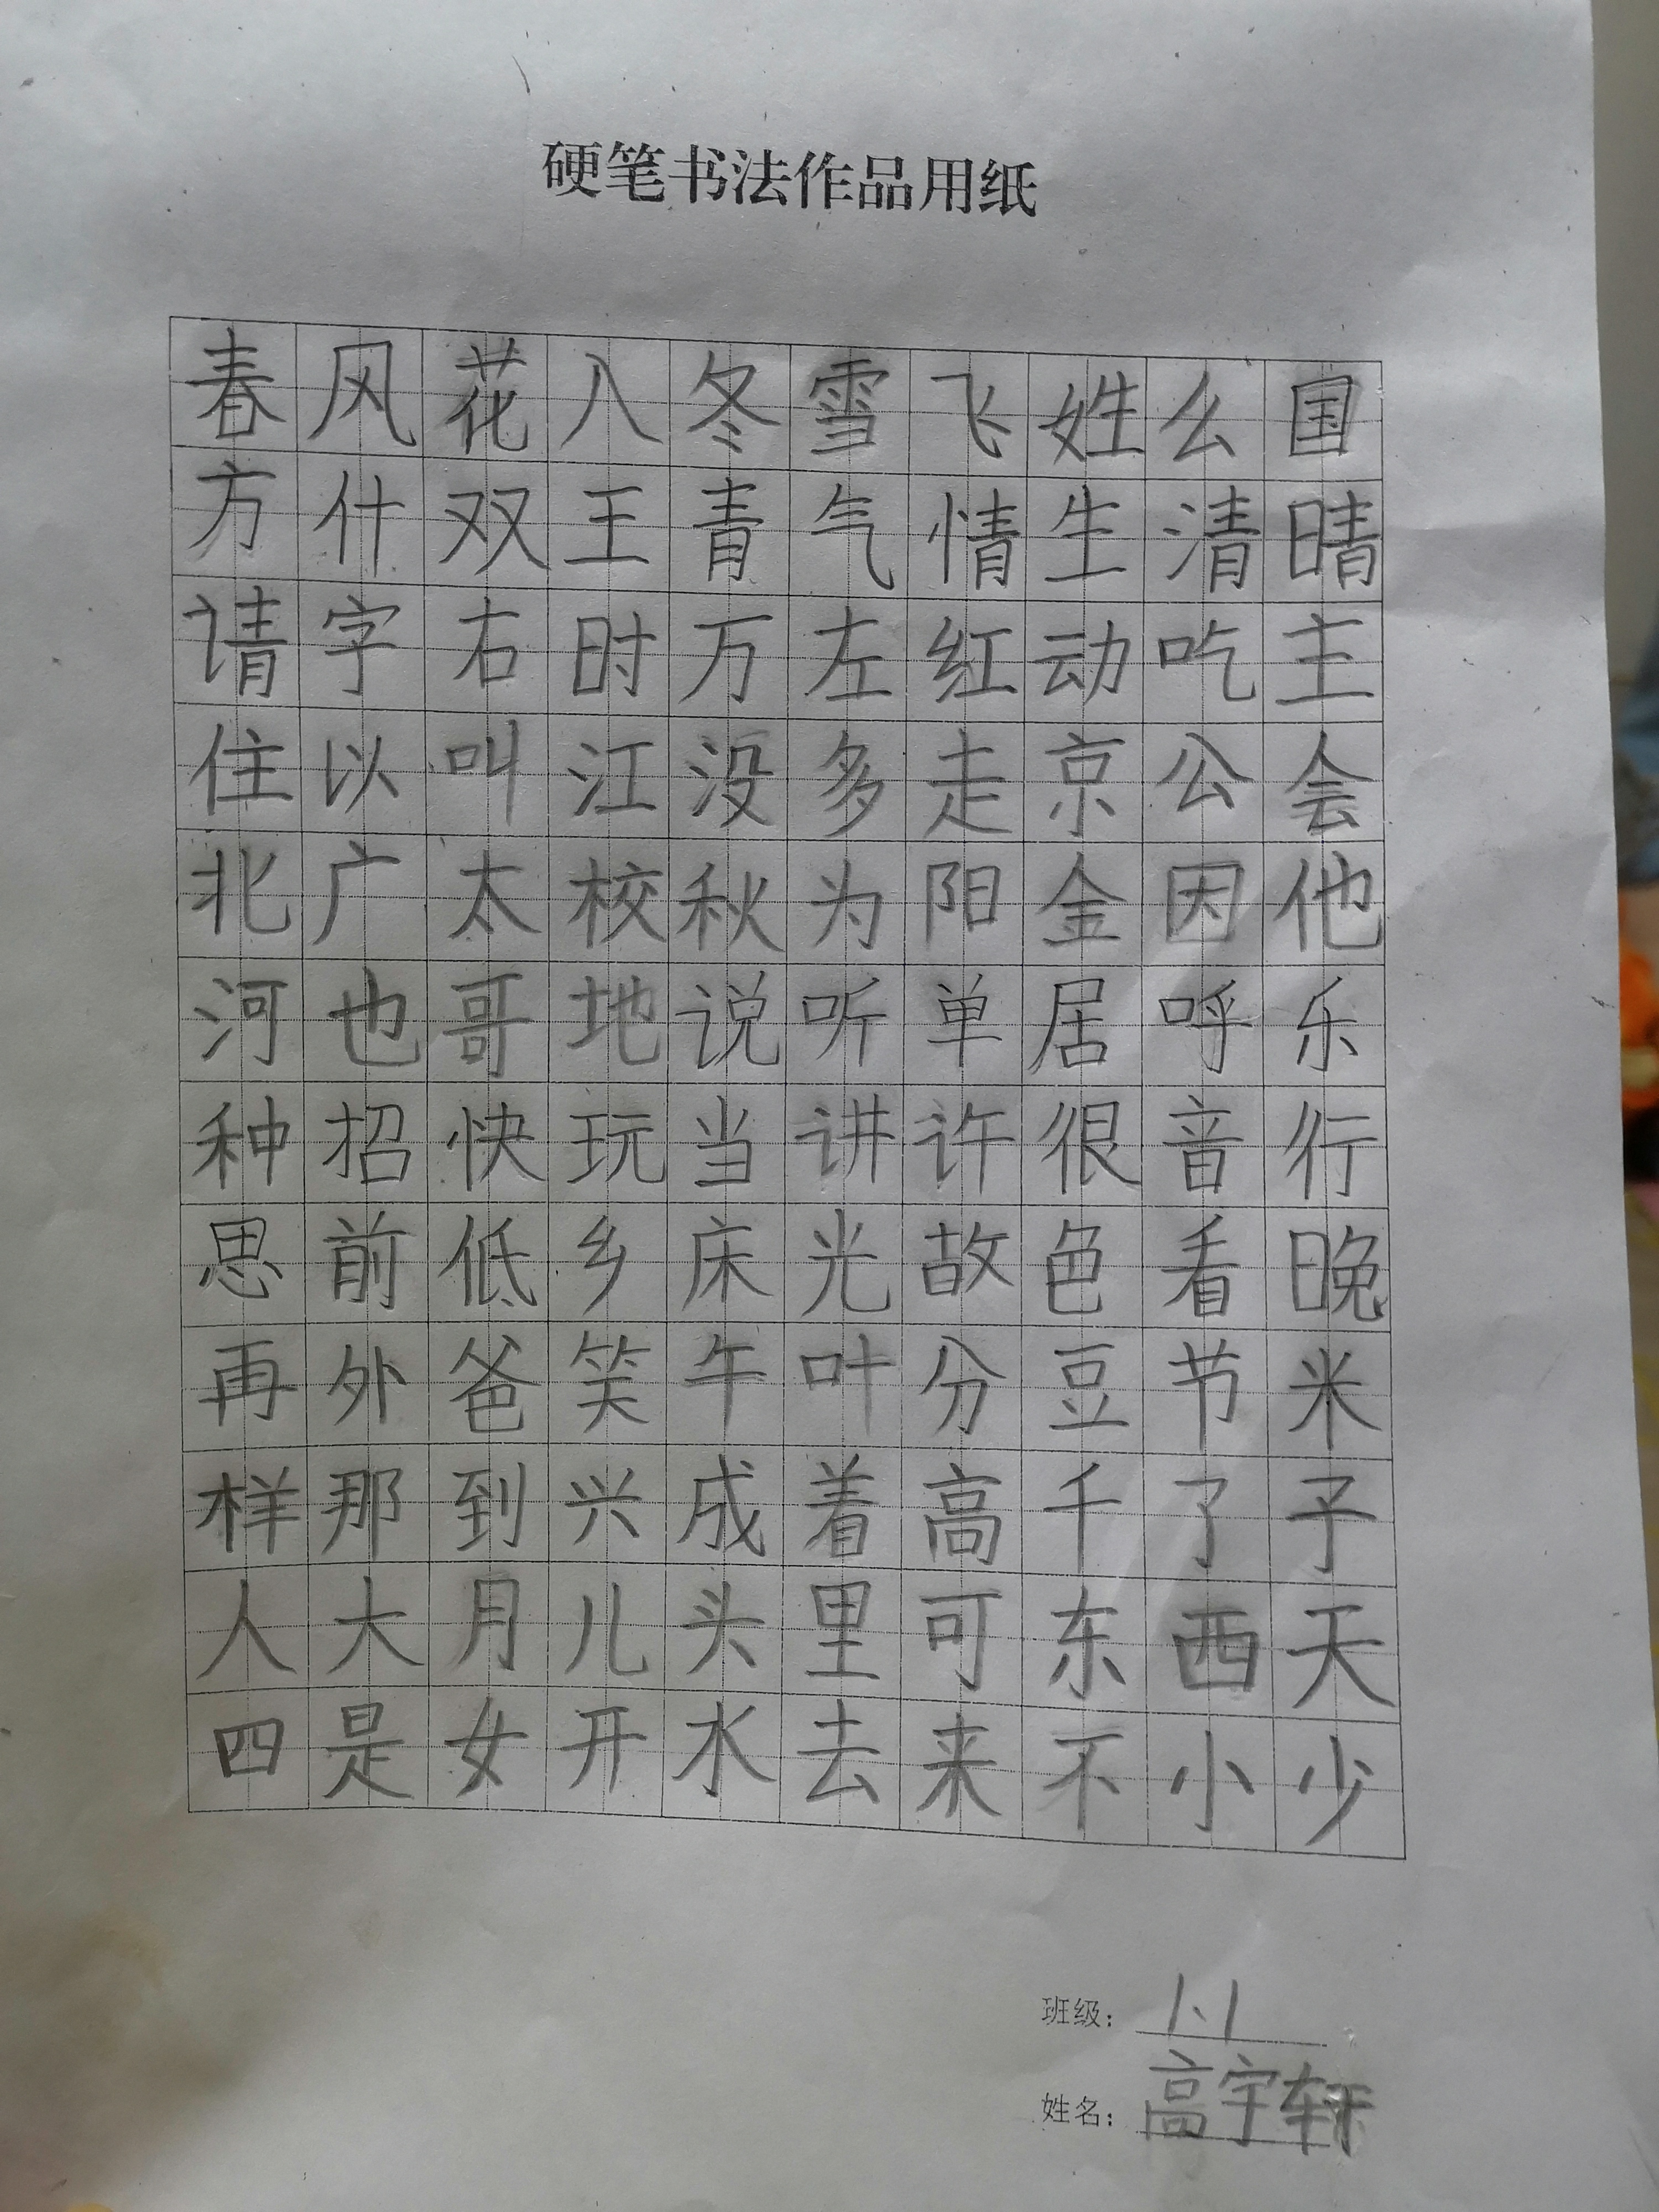 硬笔书法作品用纸
春风花八冬雪飞姓么国
方什双王青气情生清晴
请字右时万左红动吃主
住以叫江没多走京公会
北广太校秋为阳金因他
河也哥地说听单居呼乐
种招快玩当讲许很音行
思前低乡床光故色看晚
再外爸笑午叶分豆节米
样那到兴成着高千了子
人大月儿头里可东西天
四是女开水去来不小少
班级：1.1
姓名：高宇轩